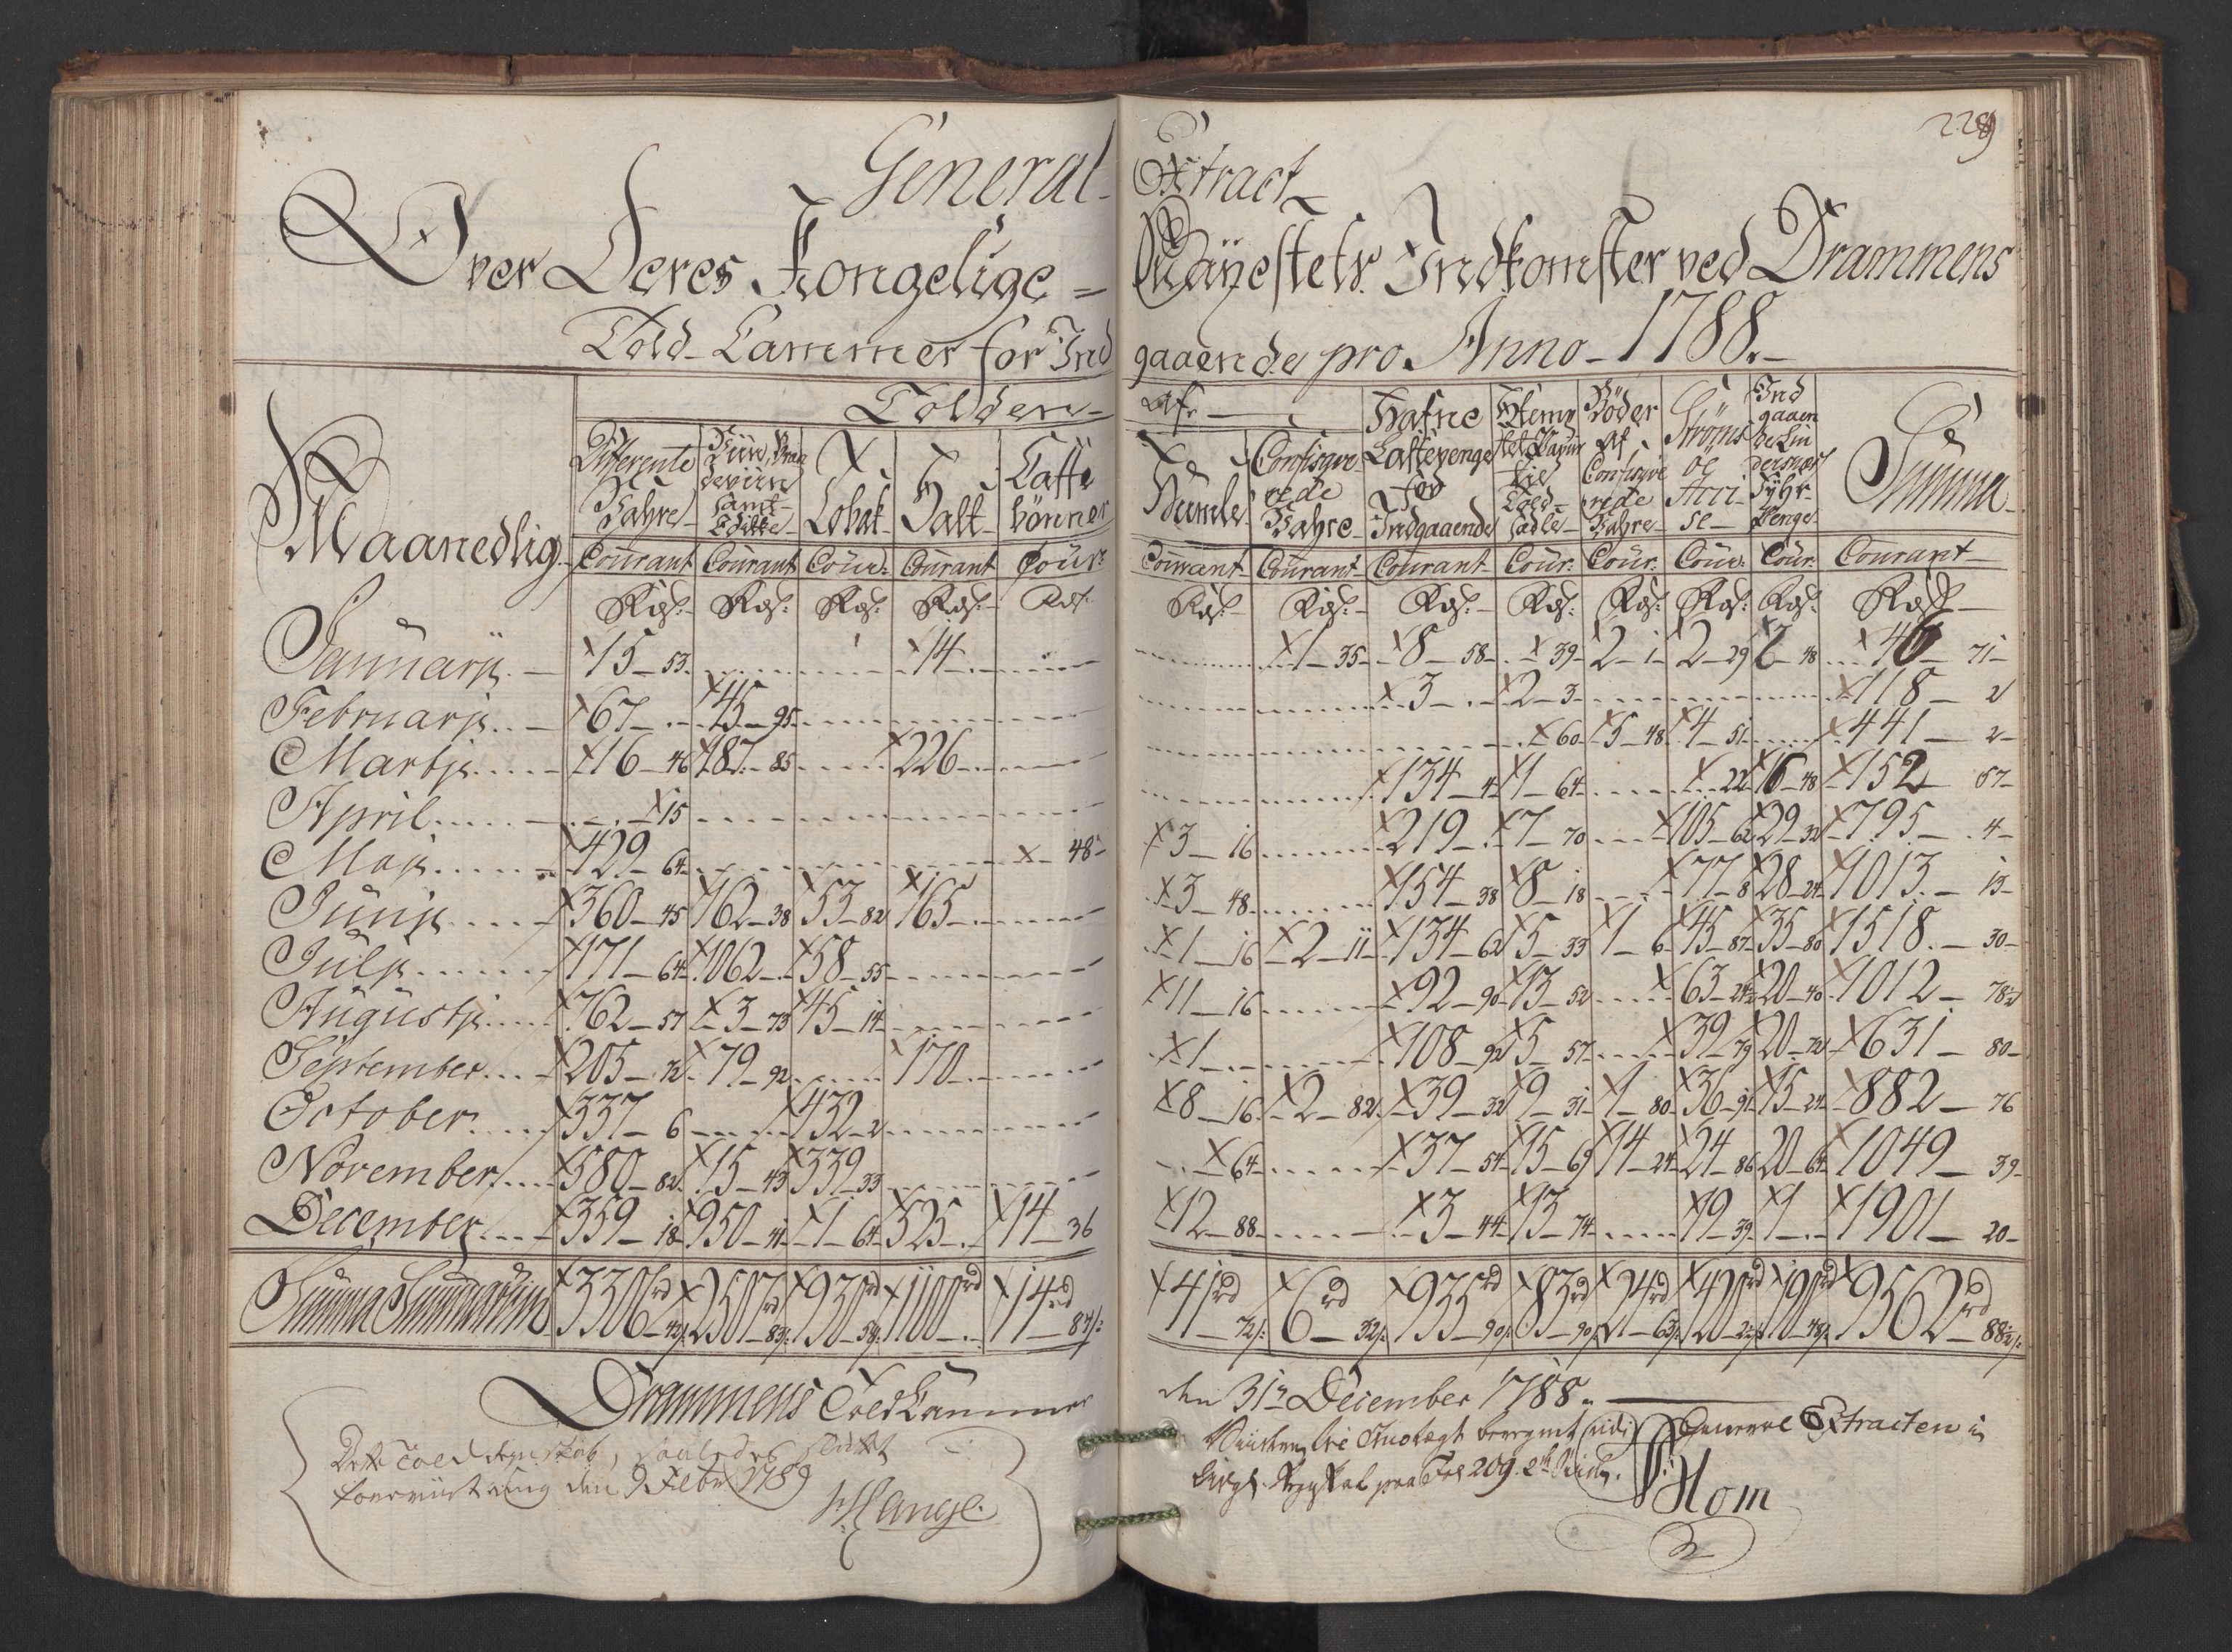 229
General- Extract
Over Deres Kongelige = Mayestets Indkomster ved Drammens
Told-Cammer for Ind gaaende pro Anno-1788.-
Tolden- Af.
Maanedlig.
Differente Vahre
Viin, Brændeviin samt Edikke
Tobak
Salt
Caffe bönner
Humle
Confisqverede Vahre
Hafne Lastepenge for Indgaaende
Stempelet Papiir til Told-Sædle
Böder af Confisqverede Vahre
Ströms og Acci-se
Ind gaaende Lindersnæs Fyhr-Penge
Summa
Courant Courant Cour: Courant Cour: Courant Courant Courant Cour: Cour: Cour: Cour: Courant
Rds: Rds: Rds: Rds: Rds: Rds: Rds: Rds: Rds: Rds: Rds: Rds: Rds:
Januarj 15-53 14 1-35 8-58 39 2-1 2-29 2-48 46-71
Februarj 67 45-95 3 2-3 118-2
Martj 116-46 87-85 226 60 5-48 4-51 441-2
April 15 134-4 1-64 22 16-48 152-57
Maj 429-64 48 3-16 219 7-70 105-62 29-32 795-4
Junj 360-45 162-38 53-82 165 3-48 154-38 8-18 77-8 28-24 1013-13
Julj 171-64 1062 58-55 1-16 2-11 134-62 5-33 1-6 45-87 35-80 1518-30
Augustj 762-57 3-73 45-14 11-16 92-90 13-52 63-24½ 20-40 1012-78½
September 205-72 79-92 170 1 108-92 5-57 39-79 20-72 631-80
October 337-6 432-2 8-16 2-82 39-32 9-31 1-80 36-91 15-24 882-76
November 580-82 15-43 339-33 64 37-54 15-69 14-24 24-86 20-64 1049-39
December 359-18 950-41 1-64 525 14-36 12-88 3-44 13-74 19-39 1 1901-20
Summa Summarum 3306rd-42s: 2507rd-83s: 930rd-58s: 1100rd 14rd-84s: 41rd-72s: 6rd-32s: 935rd-90s: 83rd-90s: 24rd-63s: 420rd 190rd-48s: 9562rd-88½s:
Drammens Told Cammer den 31te December 1788.
Dette Told saaledes sluttet
den 9 Febr 1789
Lange.
General Extracten
paa Fol 209. 2de
Blom